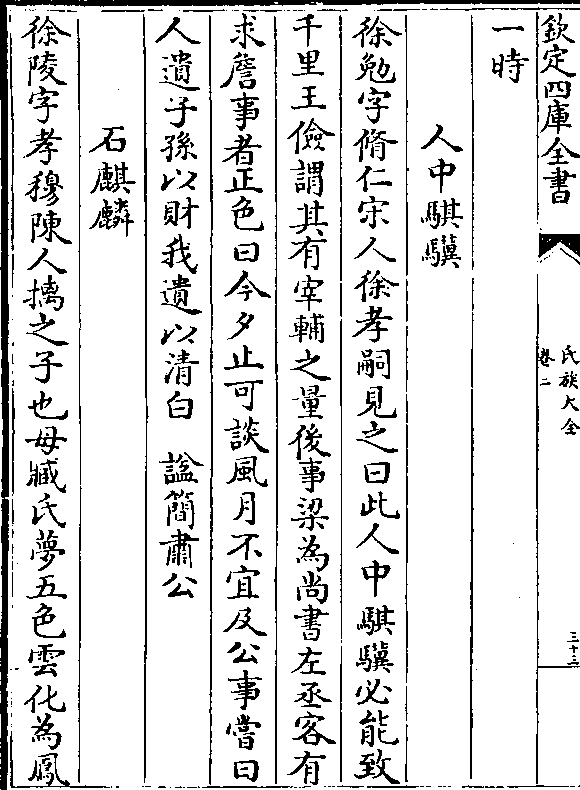 欽定四庫全書
氏族大全
卷二
三十三
一時
人中騏驥
徐勉字脩仁宋人徐孝嗣見之曰此人中騏驥必能致
千里王儉謂其有宰輔之量後事梁為尚書左丞客有
求詹事者正色曰今夕止可談風月不宜及公事嘗曰
人遺子孫以財我遺以清白　諡簡肅公
石麒麟
徐陵字孝穆陳人摛之子也母臧氏夢五色雲化為鳳